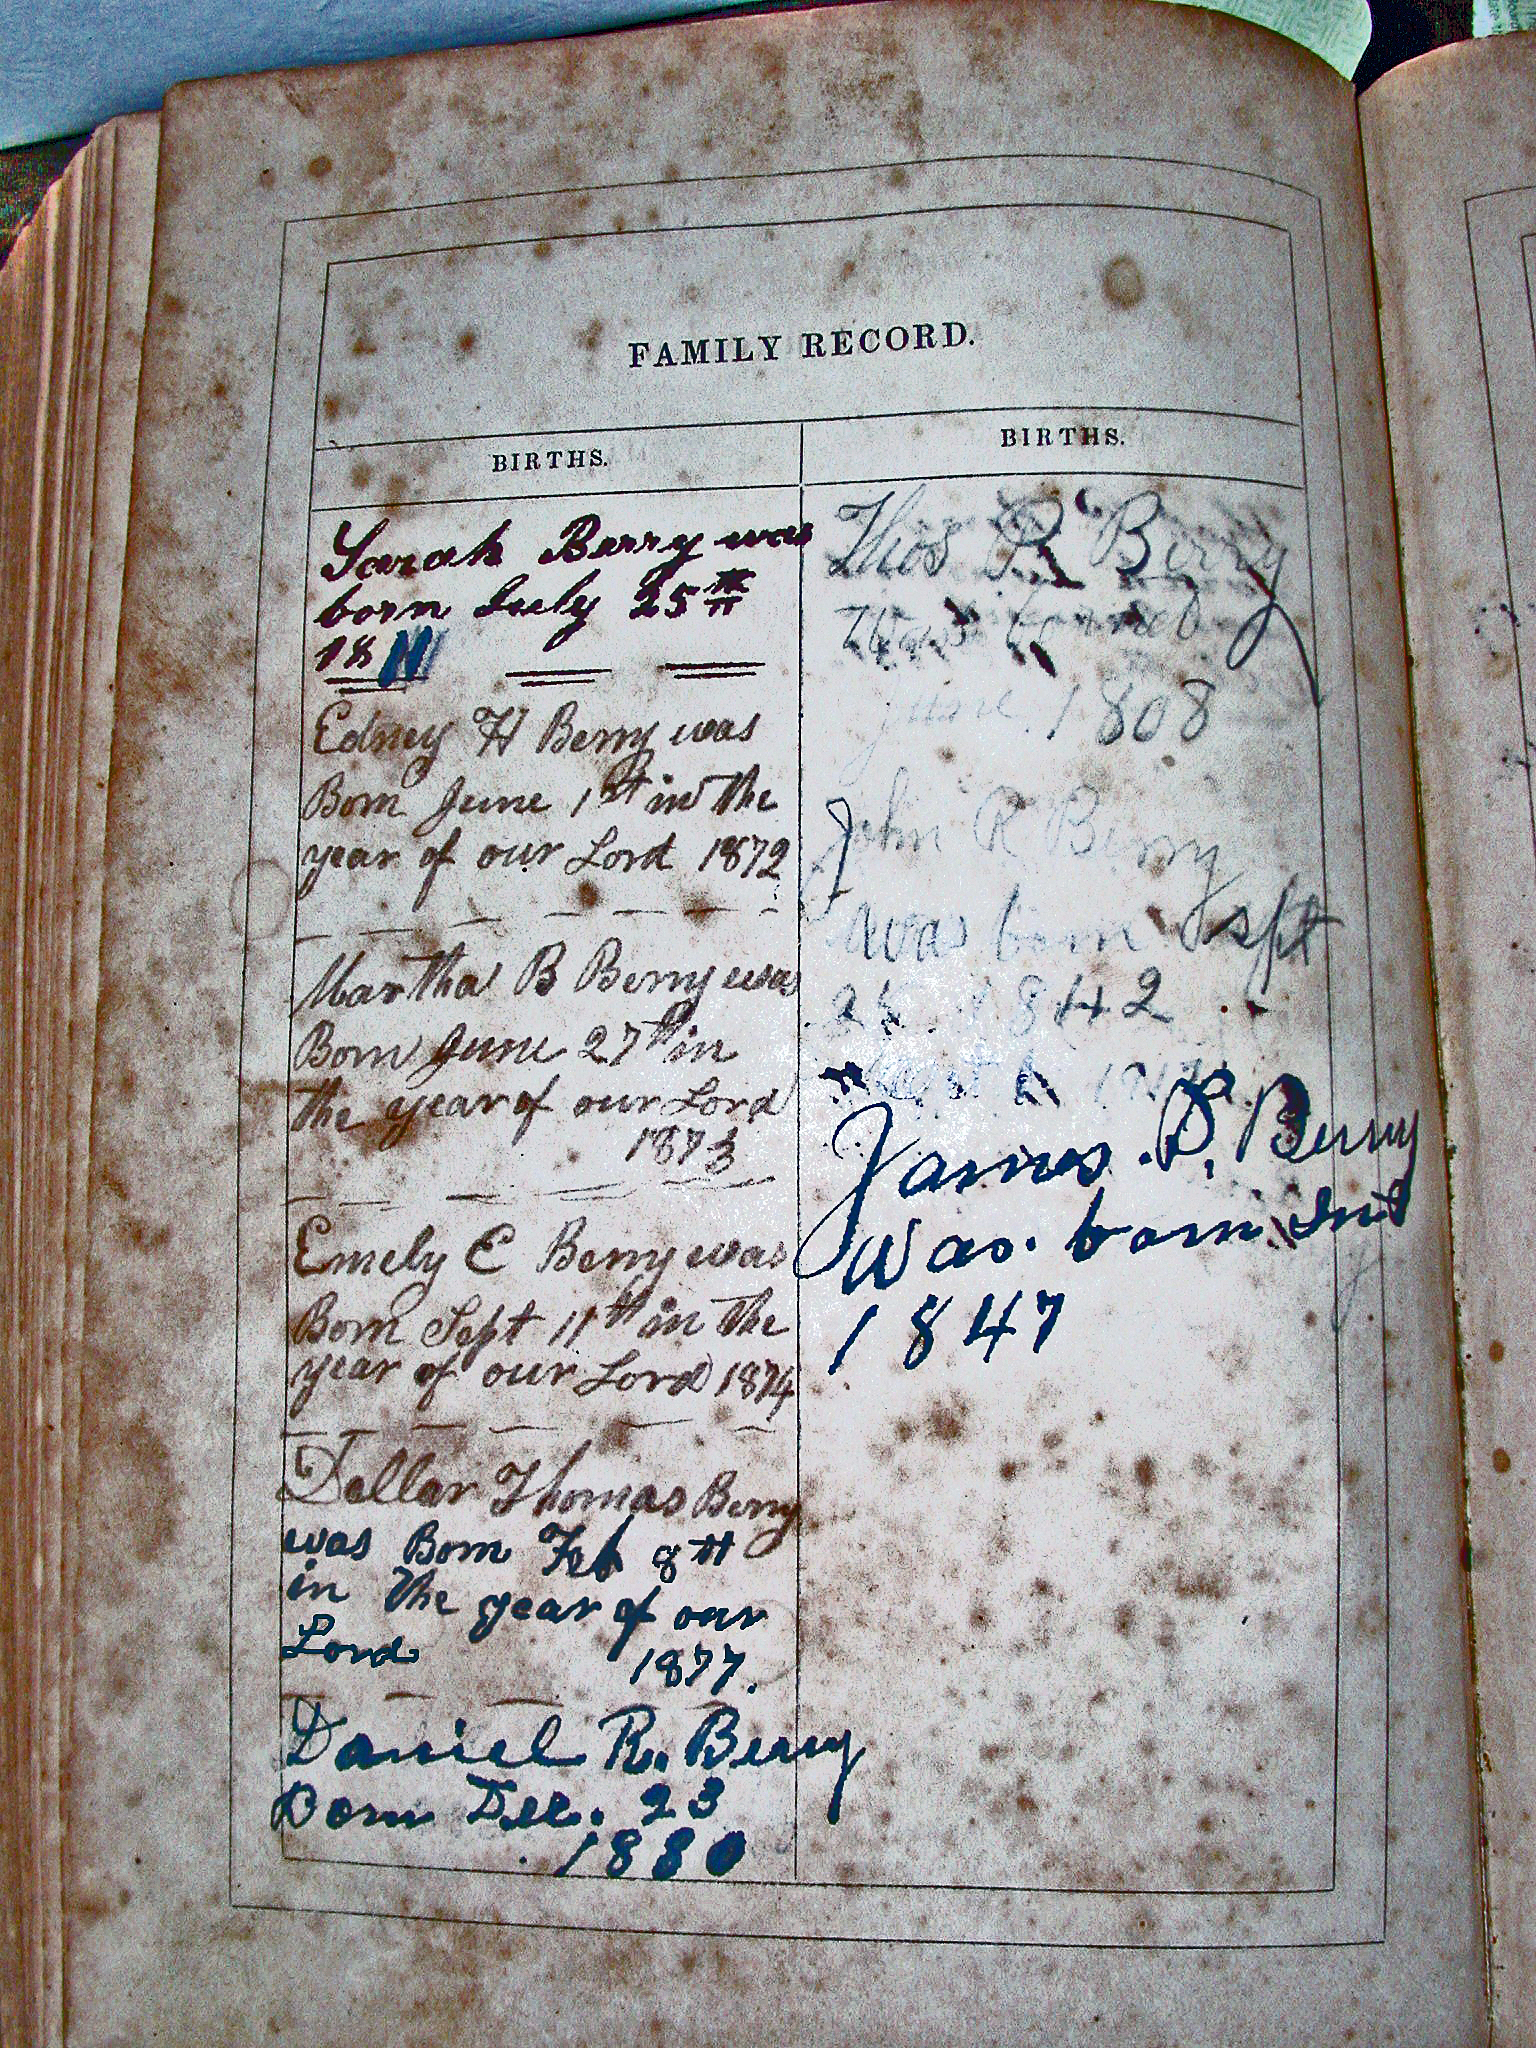 FAMILY RECORD.
BIRTHS.
Sarah Berry was
born July 25th
18
Edney H Berry was
Born June 1st in the
year of our Lord 1872
Martha B Berry was
Born June 27th in
the year of our Lord
1873
Emely E Berry was
Born Sept 11th in the
year of our Lord 1874
Dellar Thomas Berry
was Born Feb 8th
in the year of our
Lord 1877.
Daniel R. Berry
Born Dec. 23
1880
BIRTHS.
Thos R Berry
was
June 1808
John R Berry
was born Sept
25 1842
James P. Berry
was born in
1847